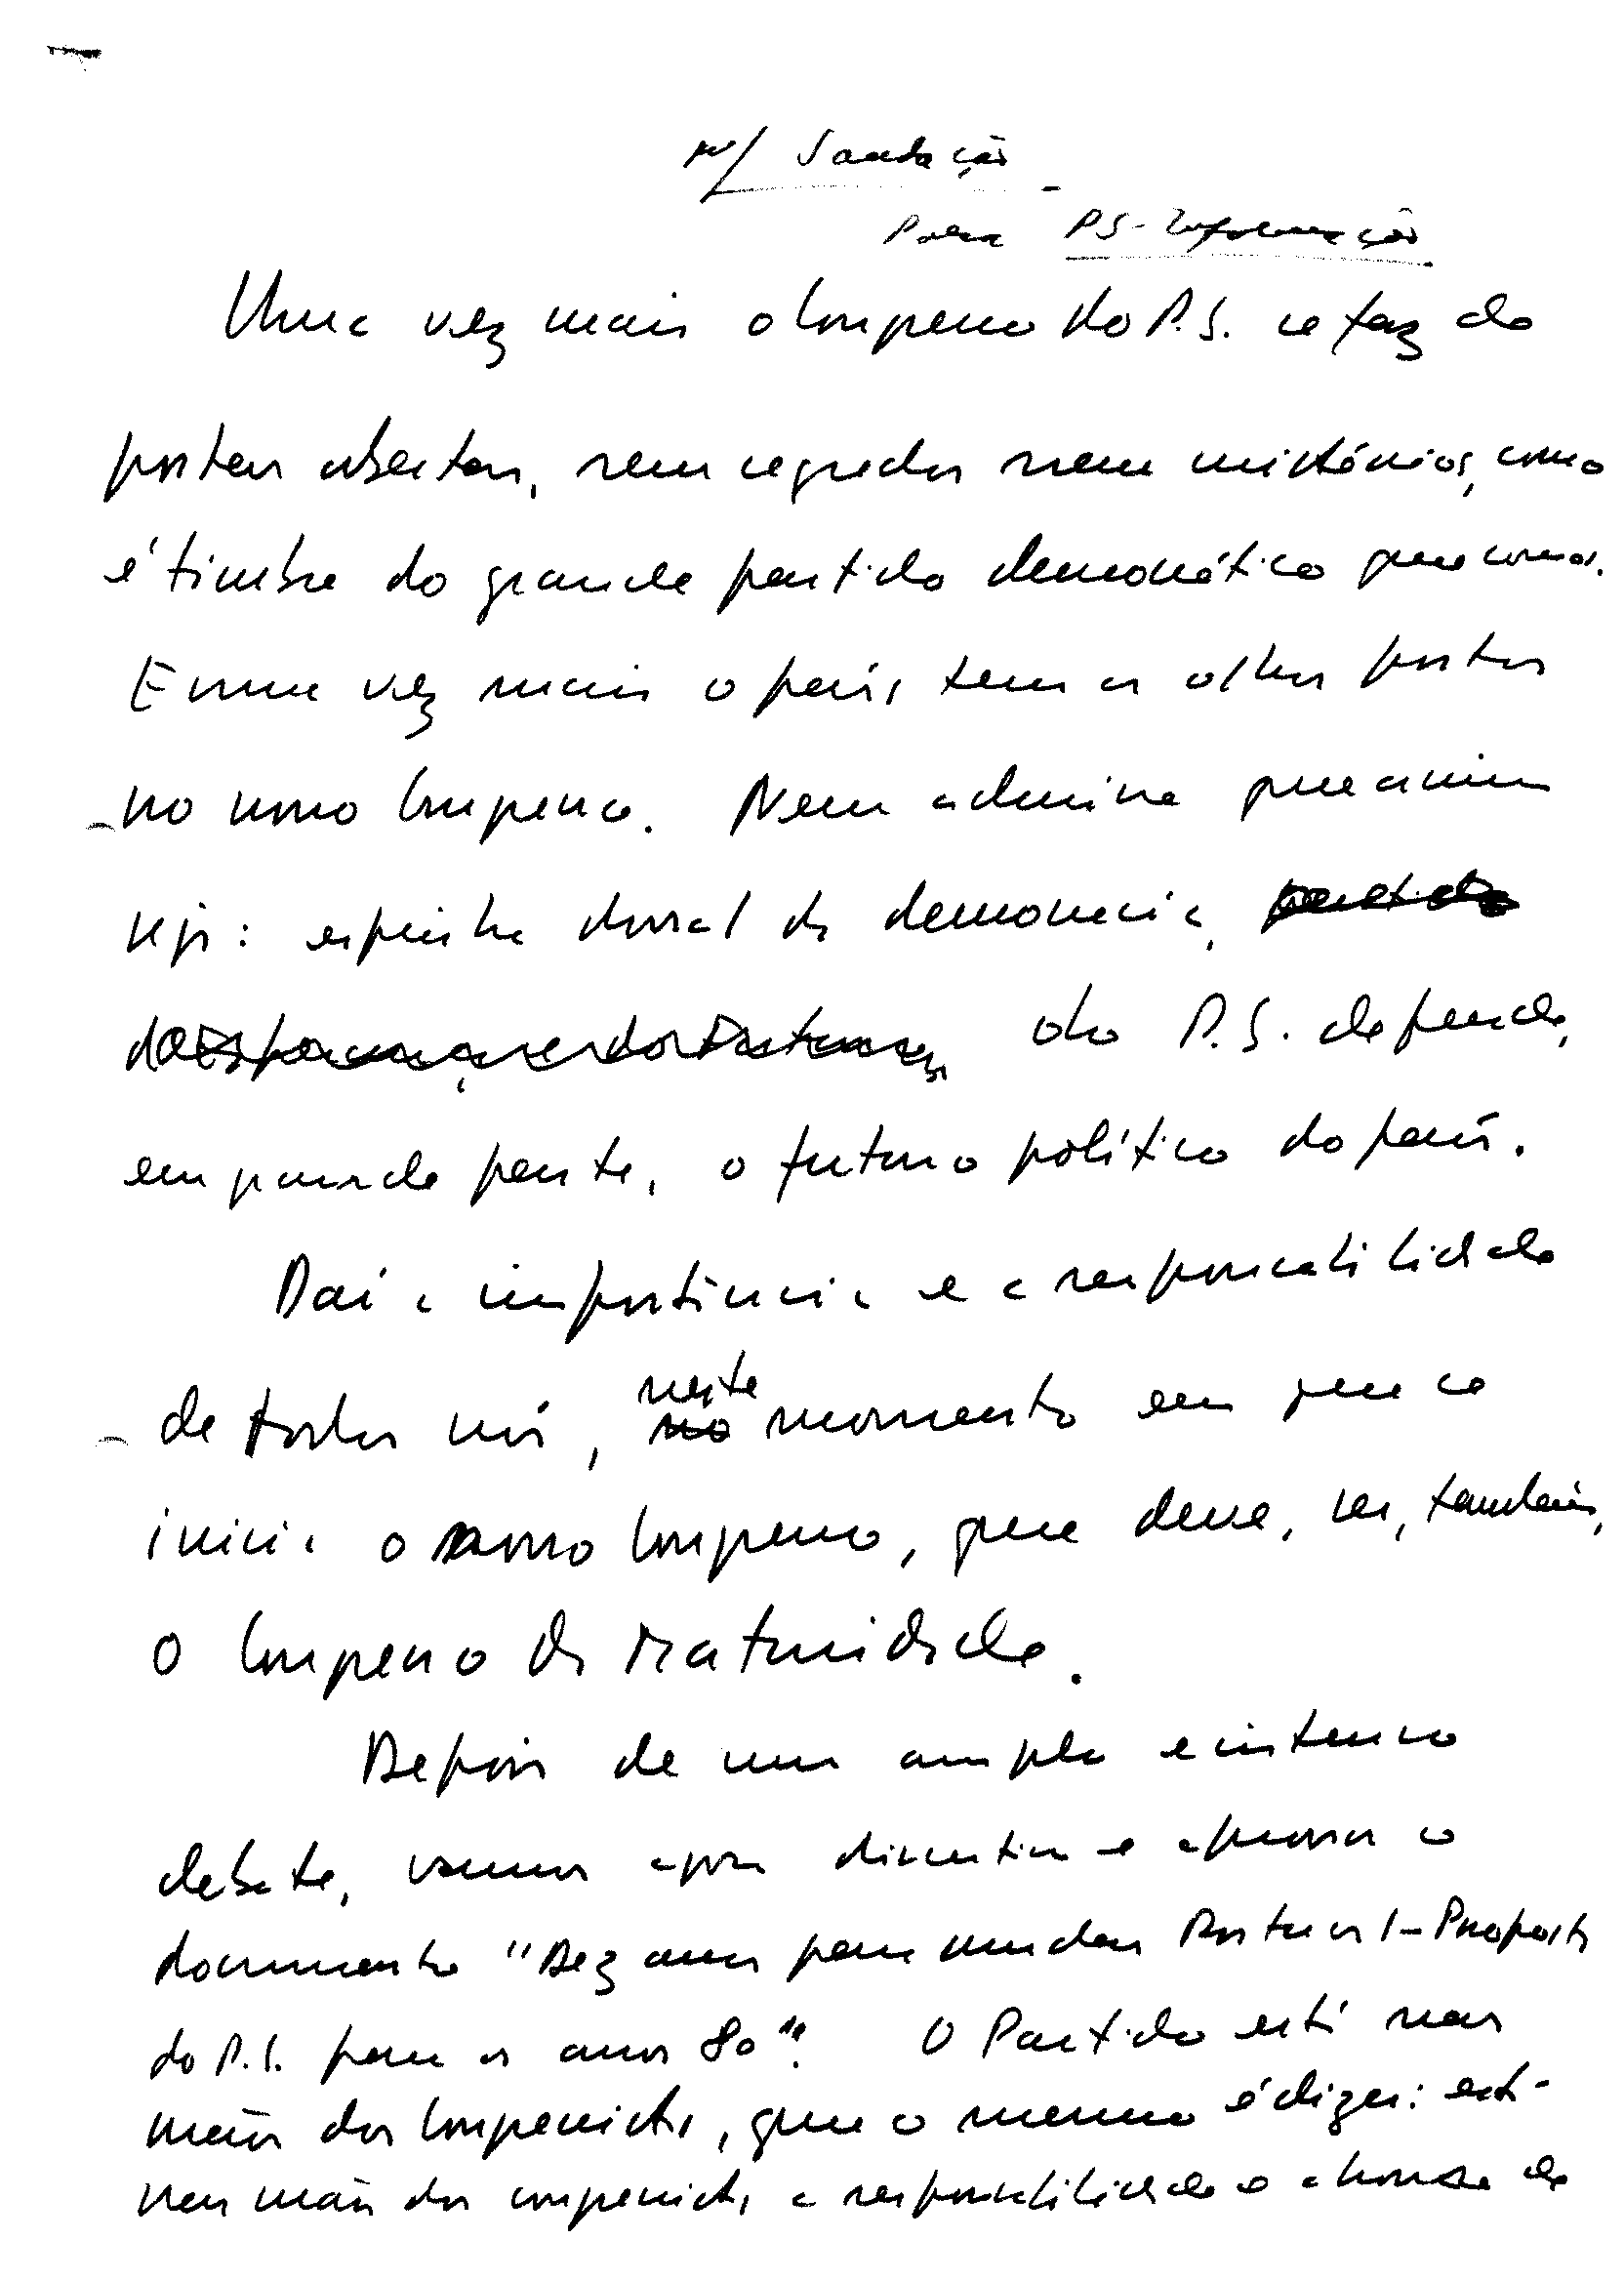 p/ Saudação
Para PS-Informação
Uma vez mais o Congresso do P.S. se faz de
portas abertas, sem segredos nem mistérios, como
é timbre do grande partido democrático que somos.
E uma vez mais o país tem os olhos postos
no nosso Congresso. Nem admira que assim
seja: espinha dorsal da democracia, partido
da Esperança dos Portugueses, do P.S. depende,
em grande parte, o futuro político do país.
Daí a importância e a responsabilidade
neste
de todos nós, no momento em que se
inicia o nosso Congresso, que deve, ser, também,
o Congresso da Maturidade.
Depois de um amplo e intenso
debate, vamos agora discutir e aprovar o
documento "Dez anos para mudar Portugal - Proposta
do P.S. para os anos 80". O Partido está nas
mãos dos Congressistas, que o mesmo é dizer: está
nas mãos dos congressistas a responsabilidade e a honra de